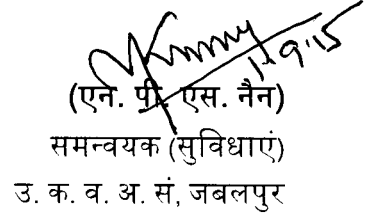 1.9.15
(एन. पी. एस. नैन)
समन्वयक (सुविधाएं)
उ. क. व. अ. सं, जबलपुर